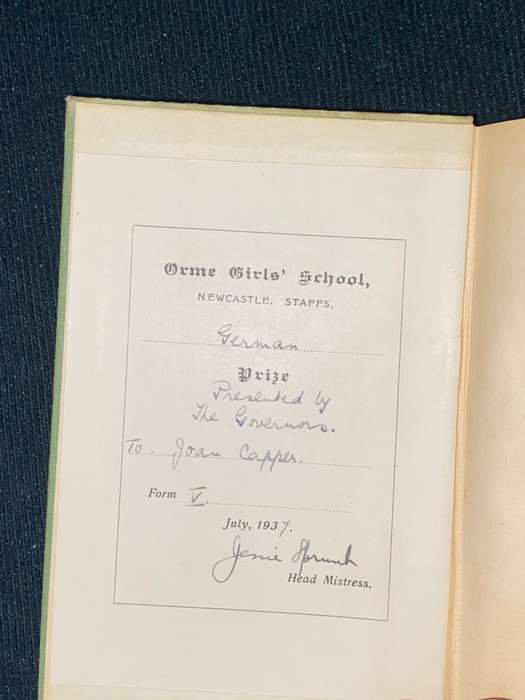 Orme Girls' School,
NEWCASTLE, STAFFS.
German
Prize
Presented by
The Governors.
To. Joan Capper.
Form V.
July, 1937.
Jessie Sprunt
Head Mistress.